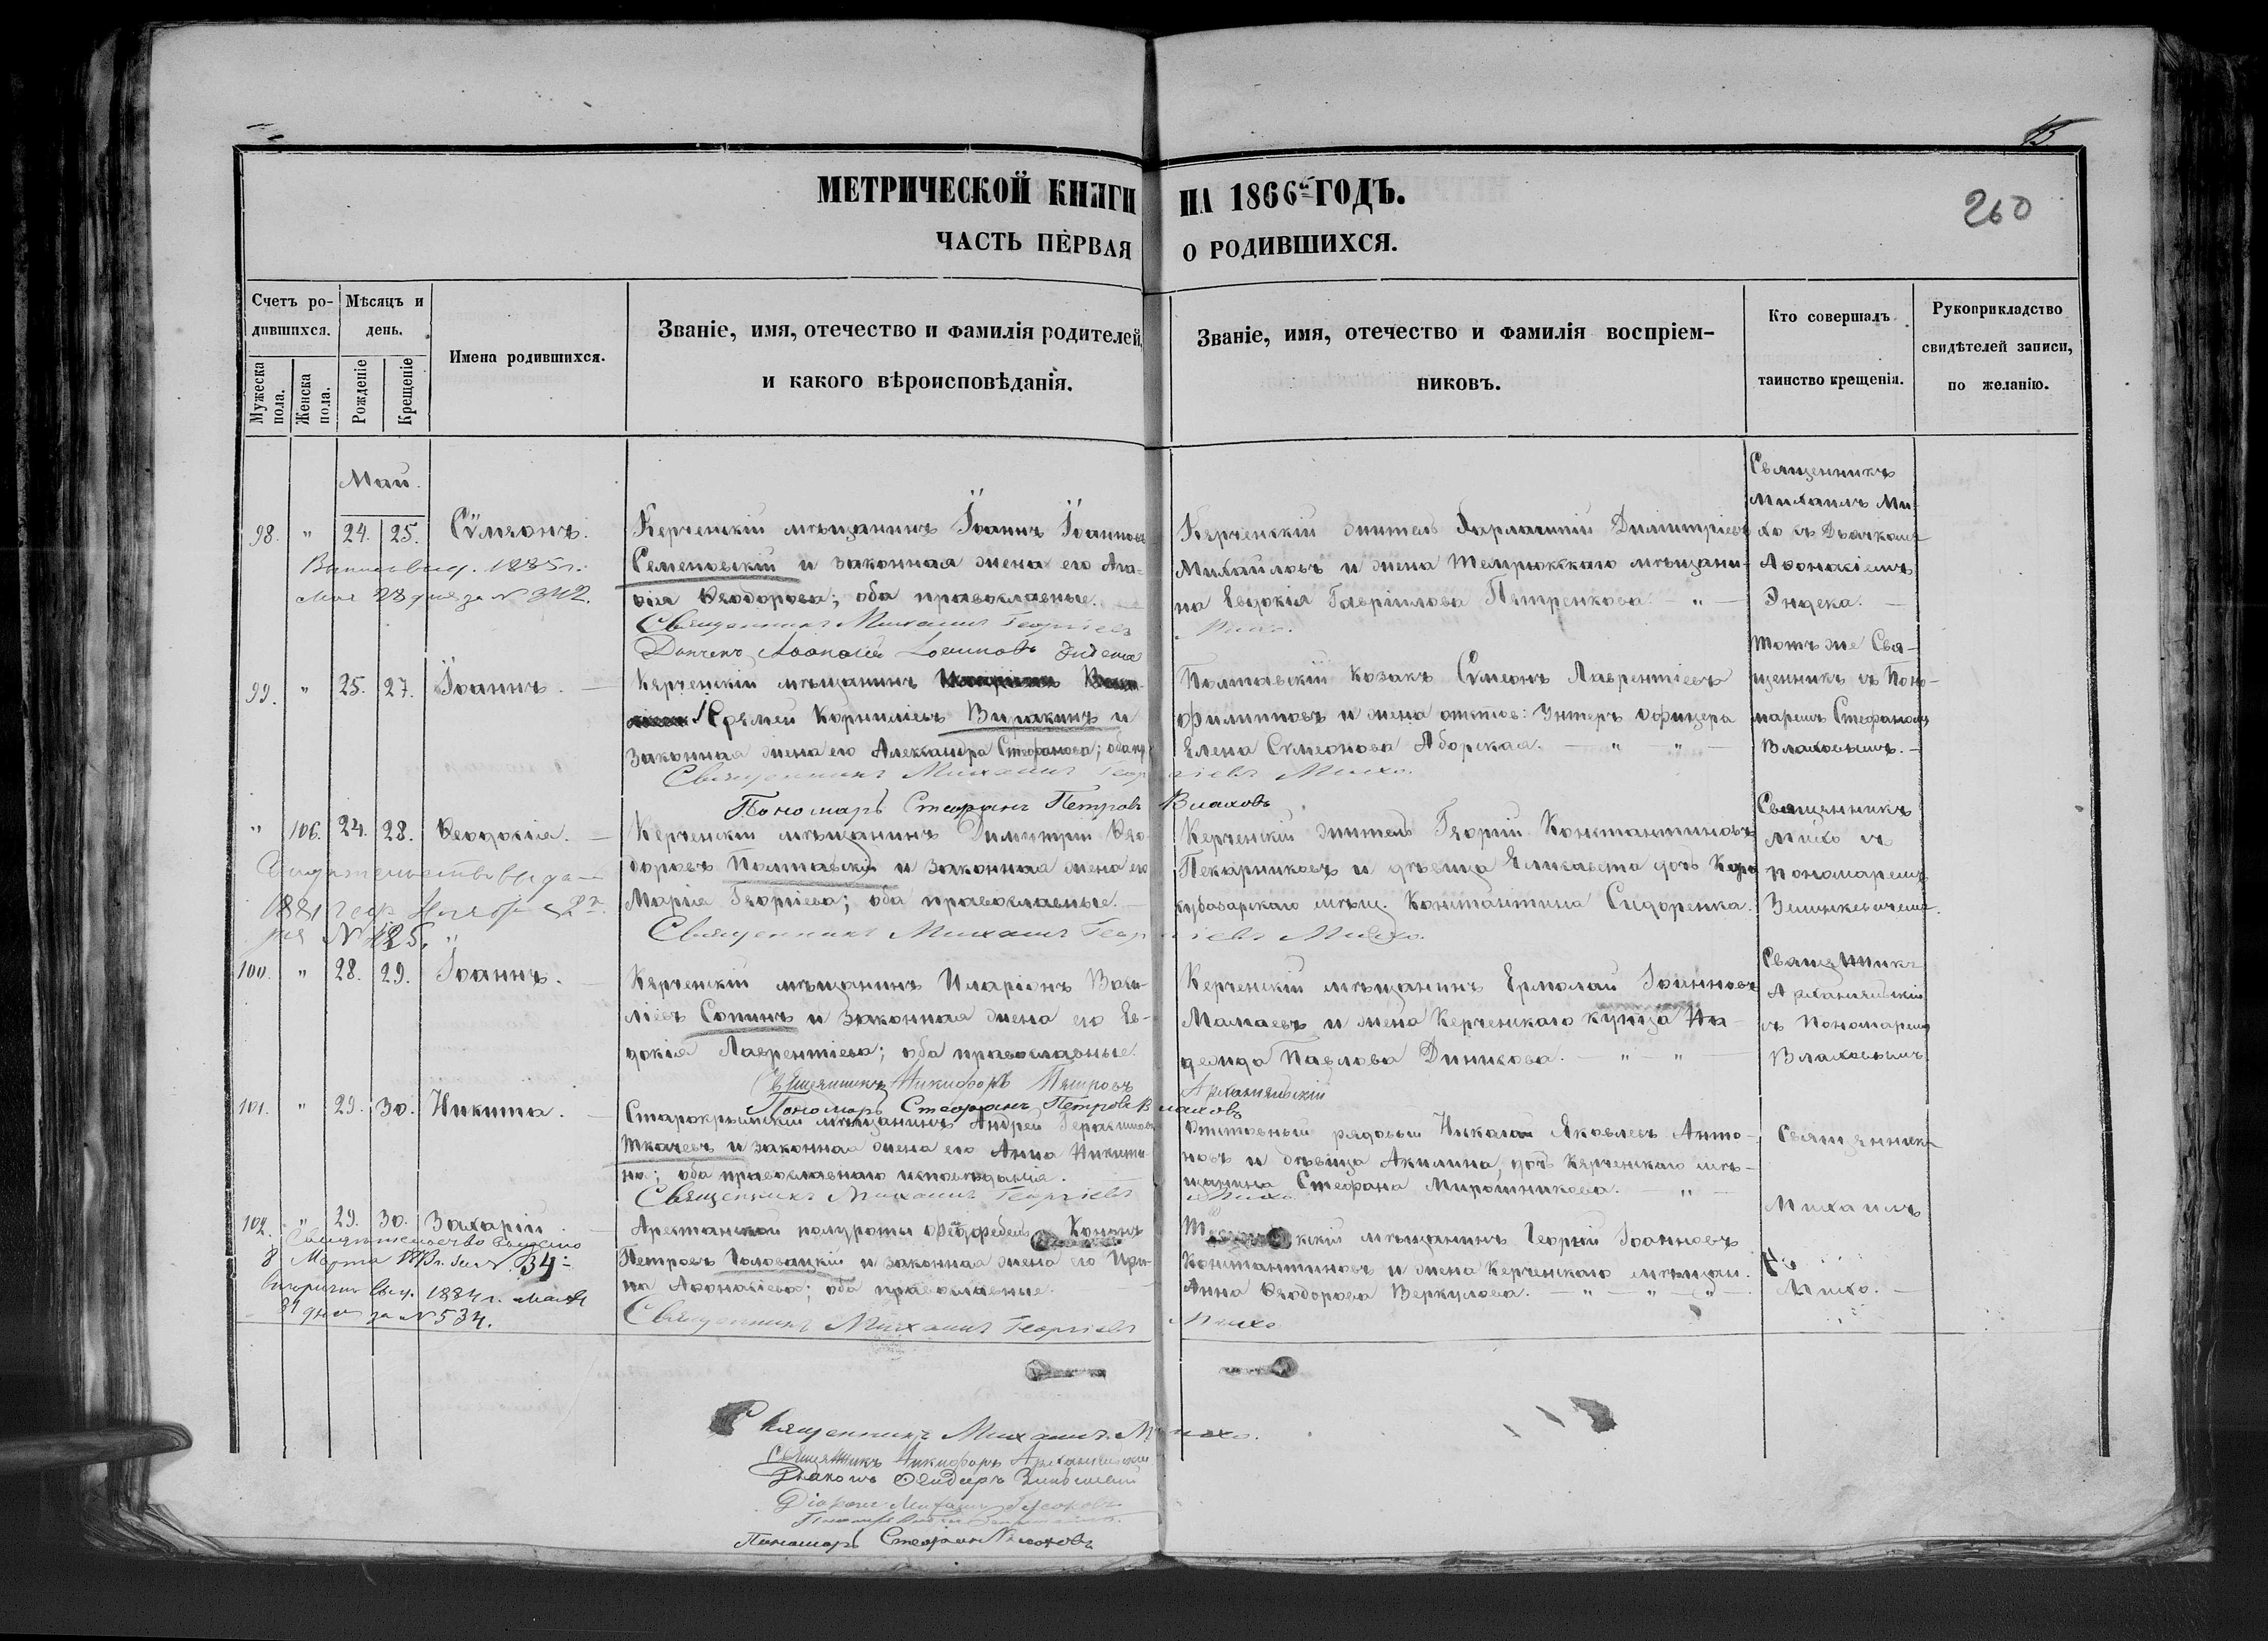 МЕТРИЧЕСКОЙ КНИГИ НА 1866й ГОДЪ.
260
ЧАСТЬ ПЕРВАЯ О РОДИВШИХСЯ.
Счетъ ро-
дившихся.
Мужеска пола.
Женска пола.
Мѣсяцъ и
день.
Рожденіе
Крещеніе
Имена родившихся.
Званіе, имя, отечество и фамилія родителей,
и какого вѣроисповѣданія.
Званіе, имя, отечество и фамилія воспріем-
никовъ.
Кто совершалъ
таинство крещенія.
Рукоприкладство
свидѣтелей записи,
по желанію.
Май.
98. " 24. 25. Сѵмеонъ.
1885 г.
Мая 28 дня за N 342.
Керченскій мѣщанинъ Іоаннъ Іоанновъ
Семеновскій и законная жена его Ага-
ѳія Ѳеодорова; оба православные.
Священникъ Михаилъ Георгіевъ Михо.
Керченскій житель Харлампій Димитріевъ
Михайловъ и жена Темрюкскаго мѣщани-
на Евдокія Гавріилова Петренкова. "
Священникъ
Михаилъ Ми-
хо съ Дьячкомъ
Аѳонасіемъ
Эндека.
99. " 25. 27. Іоаннъ.
Керченскій мѣщанинъ
Еремей Корниліевъ и
законная жена его Александра Стефанова; оба пр.
Священникъ Михаилъ Георгіевъ Михо.
Пономарь Стефанъ Петровъ Влаховъ
Полтавскій козакъ Сѵмеонъ Лаврентіевъ
Филипповъ и жена отстав: Унтеръ Офицера
Елена Сѵмеонова Аборская. " "
Тотъ же Свя-
щенникъ съ Поно-
маремъ Стефаномъ
Влаховымъ.
" 106. 24. 28. Ѳеодосія.
1881
N 125.
Керченскій мѣщанинъ Димитрій Ѳео-
доровъ Полтавскій и законная жена его
Марія Георгіева; оба православные.
Священникъ Михаилъ Георгіевъ Михо.
Керченскій житель Георгій Константиновъ
Пекарниковъ и дѣвица Елисавета дочь Кара-
кубазарскаго мѣщ. Константина Сидоренка.
Священникъ
Михо съ
пономаремъ
100. " 28. 29. Іоаннъ.
Керченскій мѣщанинъ Иларіонъ Васи-
ліевъ Сопинъ и законная жена его Ев-
докія Лаврентіева; оба православные.
Священникъ Никифоръ Петровъ Архангельскій
Пономарь Стефанъ Петровъ Влаховъ
Керченскій мѣщанинъ Ермолай Іоанновъ
Мамаевъ и жена Керченскаго купца На-
дежда Павлова Диникова. " "
Священникъ
Архангельскій
съ Пономаремъ
Влаховымъ
101. " 29. 30. Никита.
Старокрымскій мѣщанинъ Андрей Герасимовъ
Ткачевъ и законная жена его Анна Никити-
на; оба православнаго исповѣданія.
Священникъ Михаилъ Георгіевъ Михо.
Отставный рядовый Николай Яковлевъ Анто-
новъ и дѣвица Акилина, дочь Керченскаго мѣ-
щанина Стефана Мирошникова. "
Священникъ
Михаилъ
102. " 29. 30. Захарій.
Свидѣтельство выдано
8 Марта N 34
1884 г. Мая
31 дня за N 534.
Арестанской полуроты Фельдфебель Кононъ
Петровъ Головацкій и законная жена его Ири-
на Аѳонасіева; оба православные.
Священникъ Михаилъ Георгіевъ Михо
мѣщанинъ Георгій Іоанновъ
Константиновъ и жена Керченскаго мѣщан.
Анна Ѳеодорова Веркулова. " " "
Михо.
Священникъ Михаилъ Михо.
Священникъ Никифоръ Архангельскій
Пономарь Стефанъ Влаховъ